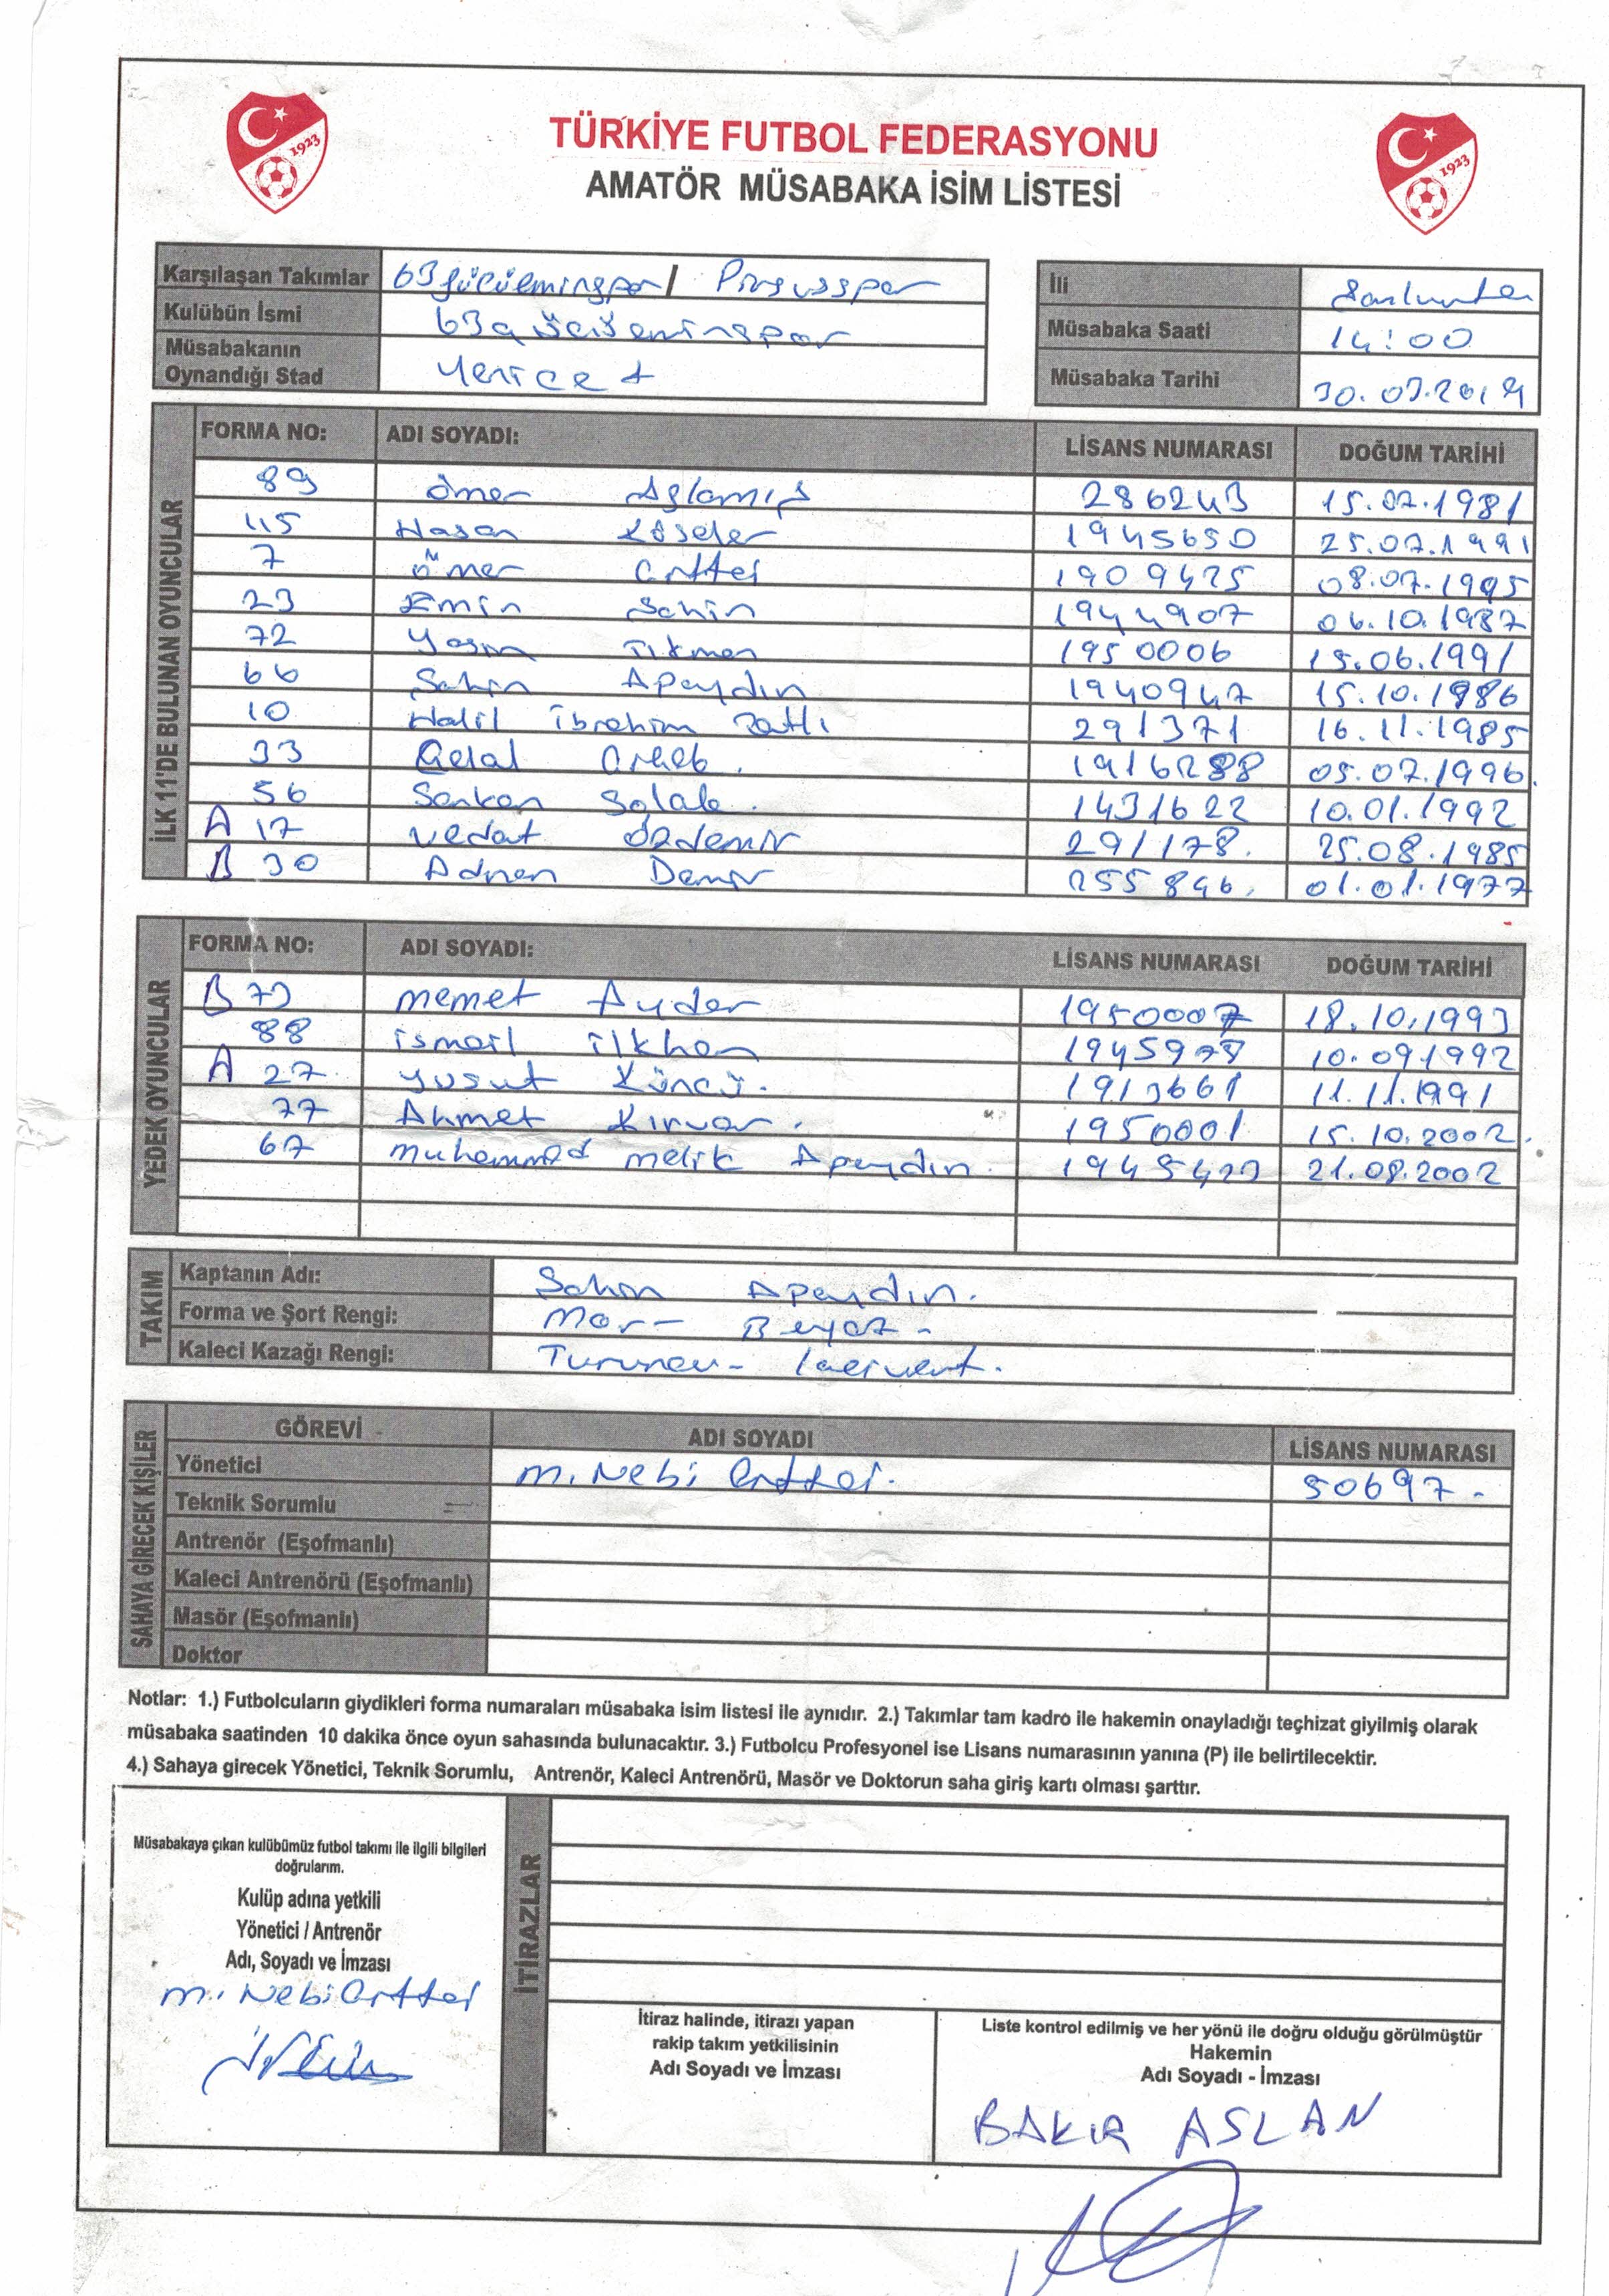 1923
1923
TÜRKİYE FUTBOL FEDERASYONU
AMATÖR MÜSABAKA İSİM LİSTESİ
Karşılaşan Takımlar
Kulübün İsmi
Müsabakanın Oynandığı Stad
İli
Müsabaka Saati 14:00
Müsabaka Tarihi
İLK 11'DE BULUNAN OYUNCULAR
FORMA NO: ADI SOYADI: LİSANS NUMARASI DOĞUM TARİHİ
89 ömer 286243 15.07.1981
115 Hasan Köseler 1945650 25.07.1991
7 ömer 1909425 08.07.1995
23 Emin Şahin 1944907 06.10.1987
72 1950006 15.06.1991
66 Şahin Apaydın 1940947 15.10.1986
10 Halil ibrahim 291371 16.11.1985
33 05.07.1996
56 Serkan 1431622 10.01.1992
A 17 vedat özdemir 291178 25.08.1985
B 30 Adnan Demir 255896 01.01.1977
YEDEK OYUNCULAR
FORMA NO: ADI SOYADI: LİSANS NUMARASI DOĞUM TARİHİ
B 73 memet 1950007 18.10.1993
88 ismail ilkhan 10.09.1992
A 27 yusuf 1913661 11.11.1991
77 Ahmet 1950001 15.10.2002
67 muhammed melik Apaydın 21.08.2002
TAKIM
Kaptanın Adı: Şahin Apaydın.
Forma ve Şort Rengi: Mor - Beyaz -
Kaleci Kazağı Rengi: Turuncu - lacivert.
SAHAYA GİRECEK KİŞİLER
GÖREVİ ADI SOYADI LİSANS NUMARASI
Yönetici m. Nebi 50697 -
Teknik Sorumlu
Antrenör (Eşofmanlı)
Kaleci Antrenörü (Eşofmanlı)
Masör (Eşofmanlı)
Doktor
Notlar: 1.) Futbolcuların giydikleri forma numaraları müsabaka isim listesi ile aynıdır. 2.) Takımlar tam kadro ile hakemin onayladığı teçhizat giyilmiş olarak
müsabaka saatinden 10 dakika önce oyun sahasında bulunacaktır. 3.) Futbolcu Profesyonel ise Lisans numarasının yanına (P) ile belirtilecektir.
4.) Sahaya girecek Yönetici, Teknik Sorumlu, Antrenör, Kaleci Antrenörü, Masör ve Doktorun saha giriş kartı olması şarttır.
Müsabakaya çıkan kulübümüz futbol takımı ile ilgili bilgileri
doğrularım.
Kulüp adına yetkili
Yönetici / Antrenör
Adı, Soyadı ve İmzası
m. Nebi
İTİRAZLAR
İtiraz halinde, itirazı yapan
rakip takım yetkilisinin
Adı Soyadı ve İmzası
Liste kontrol edilmiş ve her yönü ile doğru olduğu görülmüştür
Hakemin
Adı Soyadı - İmzası
BAKIR ASLAN